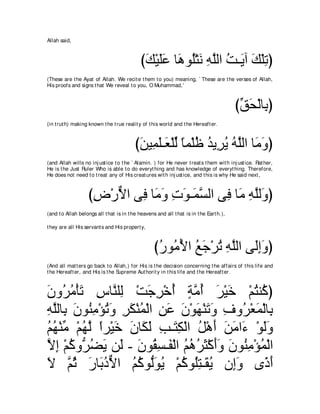 Allah said,
(تِلْكَ آيَـتُ اللَّهِ نَتْلُوهَا عَلَيْكَ)
(These are the Ayat of Allah. We recite them to you) meaning, ` These are the verses of Allah,
His proofs and signs that We reveal to you, O Muhammad,'
(بِالْحَقِّ)
(in truth) making known the true reality of this world and the Hereafter.
(وَمَا اللَّهُ يُرِيدُ ظُلْماً لِّلْعَـلَمِينَ)
(and Allah wills no injustice to the ` Alamin. ) for He never treats them with injustice. Rather,
He is the Just Ruler Who is able to do everything and has knowledge of everything. Therefore,
He does not need to treat any of His creatures with injustice, and this is why He said next,
(وَللَّهِ مَا فِى السَّمَـوَتِ وَمَا فِى الاٌّرْضِ)
(and to Allah belongs all that is in the heavens and all that is in the Earth.),
they are all His servants and His property.
(وَإِلَى اللَّهِ تُرْجَعُ الاٍّمُورُ)
(And all matters go back to Allah,) for His is the decision concerning the affairs of this life and
the Hereafter, and His is the Supreme Authority in this life and the Hereafter.
(كُنْتُمْ خَيْرَ أُمَّةٍ أُخْرِجَتْ لِلنَّاسِ تَأْمُرُونَ
بِالْمَعْرُوفِ وَتَنْهَوْنَ عَنِ الْمُنْكَرِ وَتُؤْمِنُونَ بِاللَّهِ
وَلَوْ ءَامَنَ أَهْلُ الْكِتَـبِ لَكَانَ خَيْراً لَّهُمْ مِّنْهُمُ
الْمُؤْمِنُونَ وَأَكْثَرُهُمُ الْفَـسِقُونَ - لَن يَضُرُّوكُمْ إِلاَّ
أَذًى وَإِن يُقَـتِلُوكُمْ يُوَلُّوكُمُ الاٌّدُبَارَ ثُمَّ لاَ